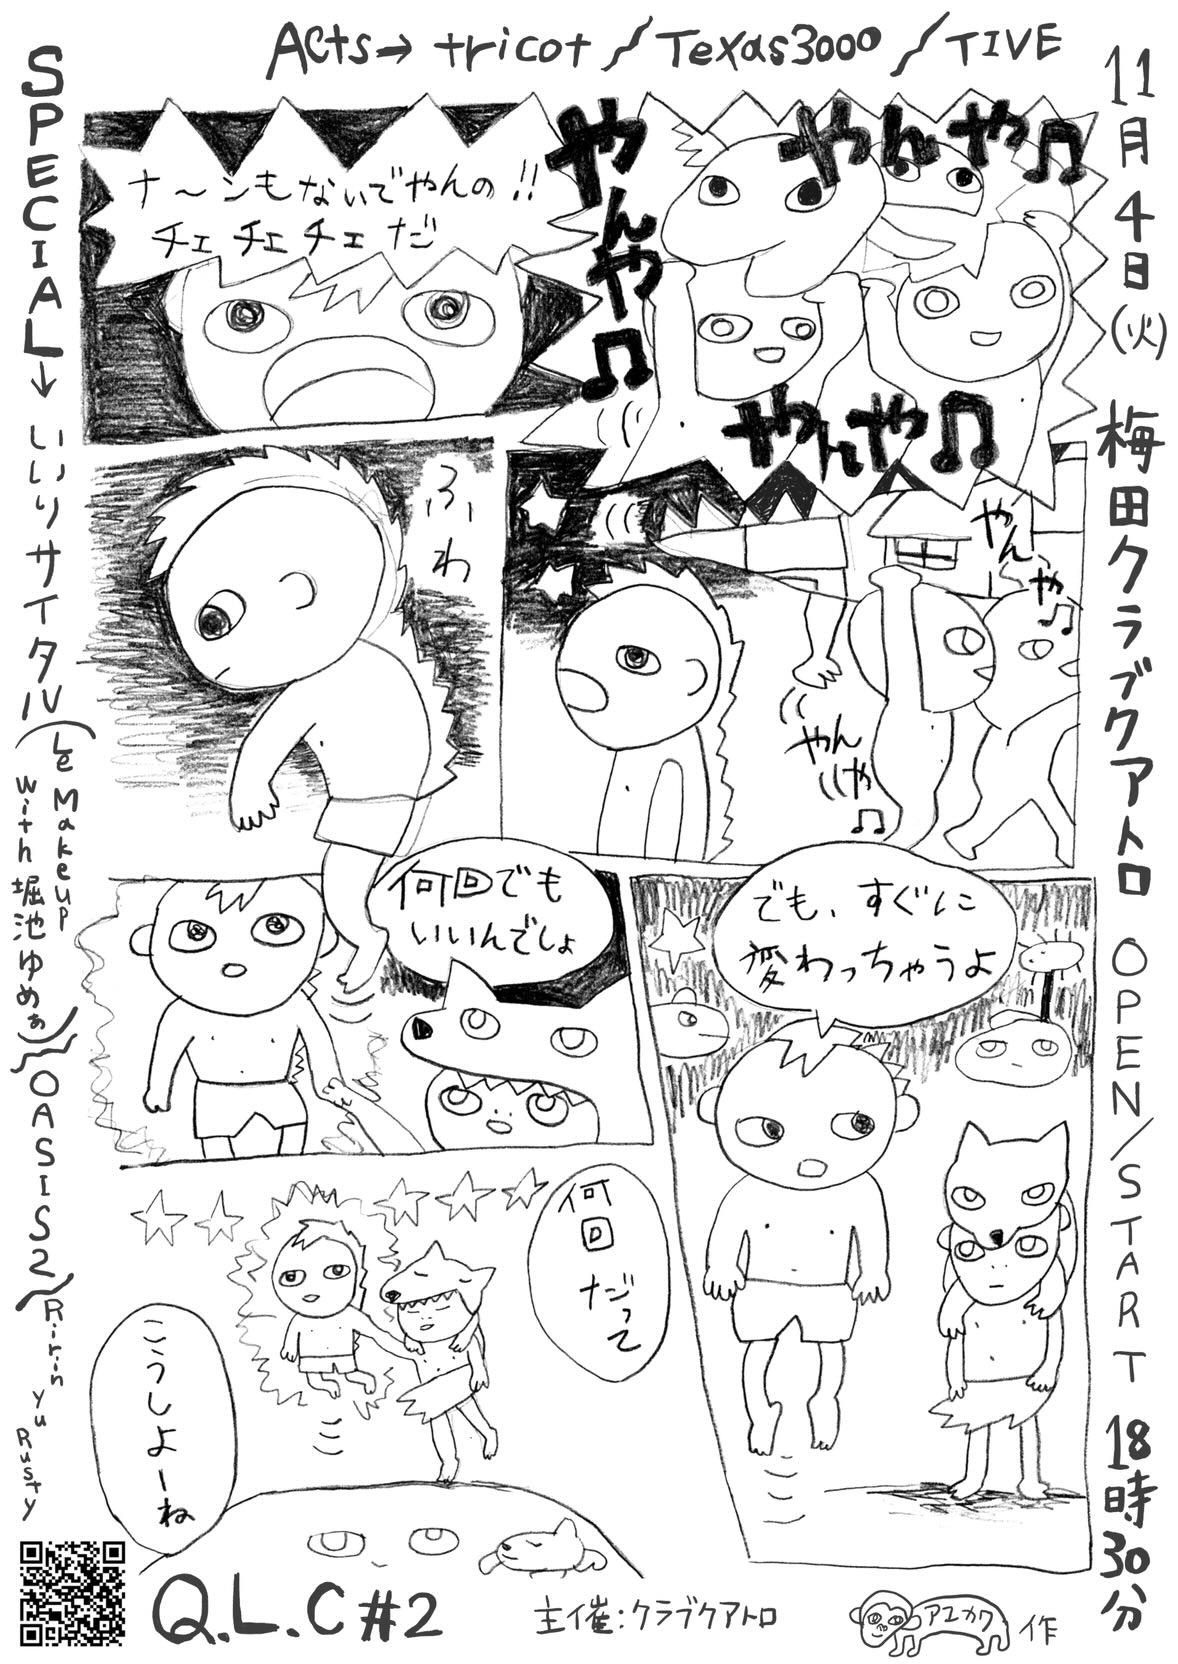 Acts→ tricot / Texas3000 / TIVE
11月4日(火) 梅田クラブクアトロ OPEN/START 18時30分
SPECIAL→ いりサイタル (Le Makeup with 堀池ゆめぁ) / OASIS2 / Ririn yu Rusty
やんや♫
やんや♫
やんや♫
ナ〜ンもないでやんの!!
チェ チェ チェ だ
やんや♫
やんや♫
ふわ
でも、すぐに
変わっちゃうよ
何回でも
いいんでしょ
何回だって
こうしよーね
Q.L.C #2
主催:クラブクアトロ
アユカワ 作